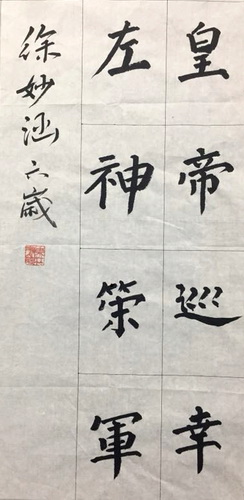 皇帝巡幸
左神策軍
徐妙涵六歲